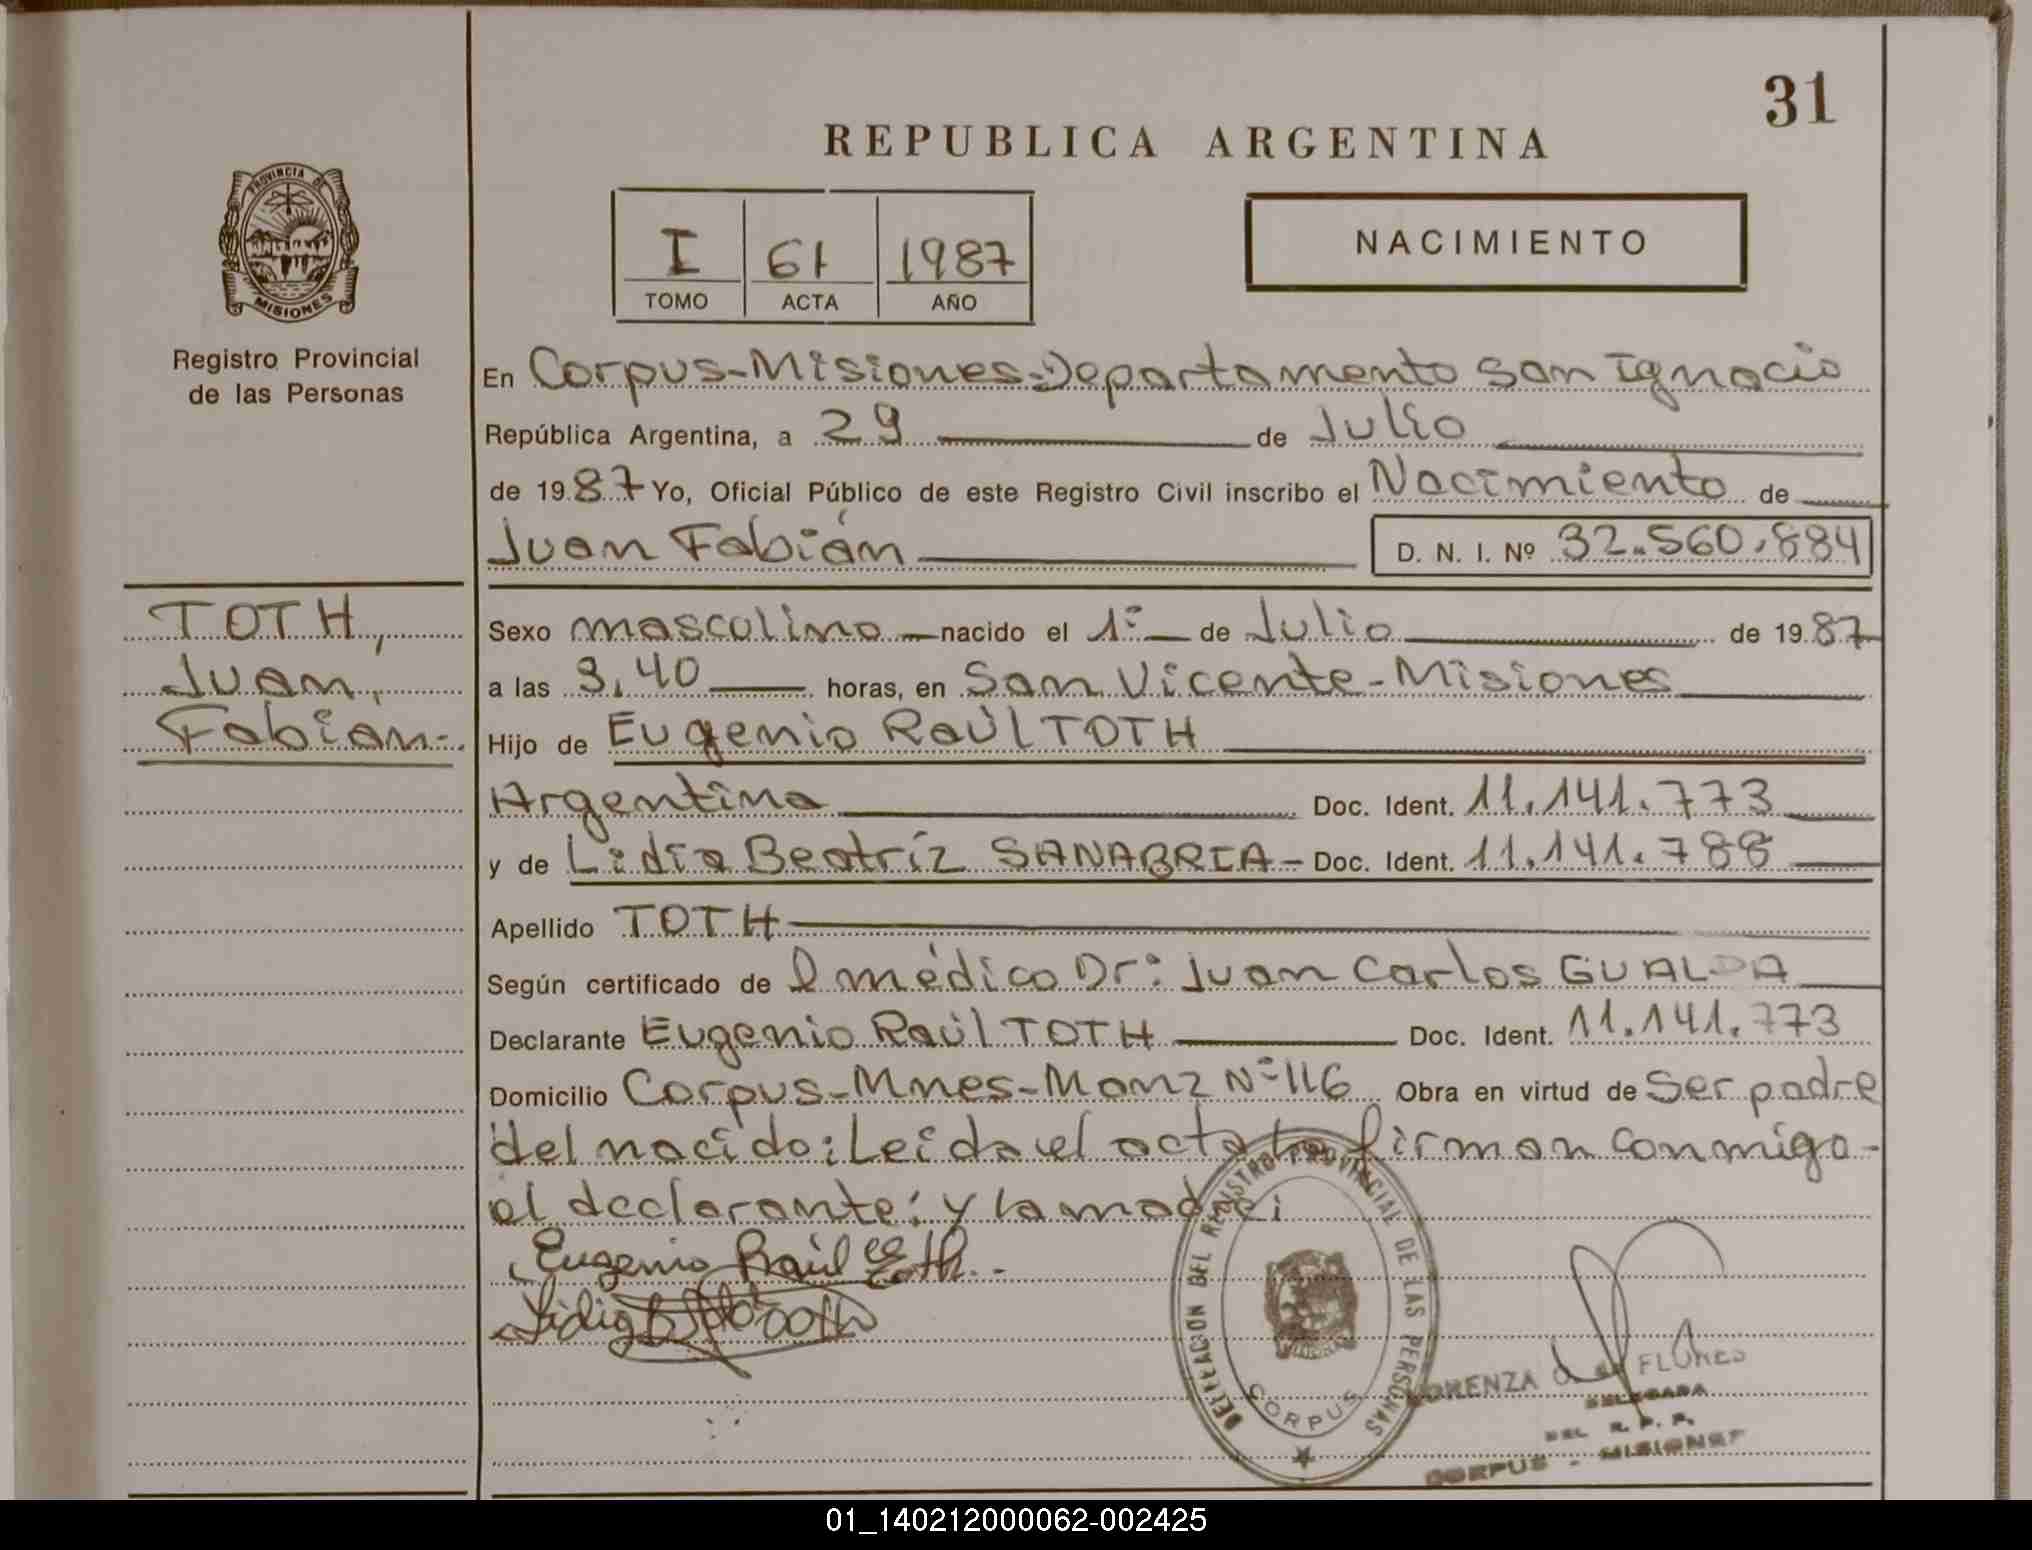 31
REPUBLICA ARGENTINA
PROVINCIA DE
MISIONES
Registro Provincial
de las Personas
I 61 1987
TOMO ACTA AÑO
NACIMIENTO
En Corpus-Misiones-Departamento San Ignacio
República Argentina, a 29 de Julio
de 1987 Yo, Oficial Público de este Registro Civil inscribo el Nacimiento de
Juan Fabián D. N. I. Nº 32.560.884
TOTH,
Juan
Fabián-.
Sexo masculino nacido el 1º de Julio de 1987
a las 3,40 horas, en San Vicente-Misiones
Hijo de Eugenio Raúl TOTH
Argentina Doc. Ident. 11.141.773
y de Lidia Beatríz SANABRIA- Doc. Ident. 11.141.788
Apellido TOTH
Según certificado de l médico Dr: Juan Carlos GUALDA
Declarante Eugenio Raúl TOTH Doc. Ident. 11.141.773
Domicilio Corpus-Mnes-Manz Nº 116 Obra en virtud de Ser padre
del nacido: Leida el acta la firman conmigo-
el declarante: y la madre;
Eugenio Raúl Toth.-
Lidia
DELEGACION DEL REGISTRO PROVINCIAL DE LAS PERSONAS
CORPUS
LORENZA de FLORES
DELEGADA
DEL R. P. P.
CORPUS - MISIONES
01_140212000062-002425